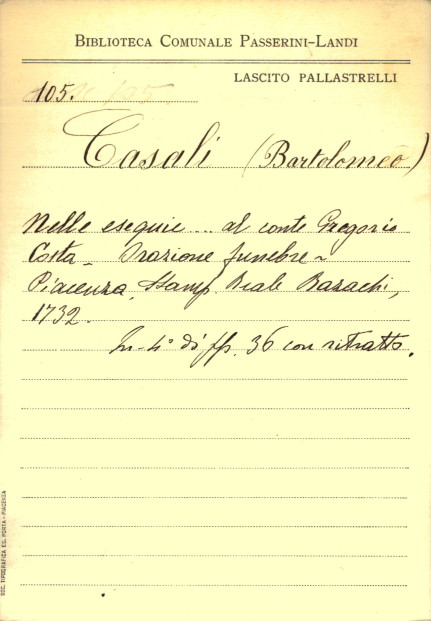 BIBLIOTECA COMUNALE PASSERINI-LANDI
LASCITO PALLASTRELLI
105.
Casali (Bartolomeo)
Nelle esequie ... al conte Gregorio
Costa - Orazione funebre -
Piacenza, Stamp. Reale Bazachi,
1732.
In-4° di pp. 36 con ritratto.
SOC. TIPOGRAFICA ED. PORTA - PIACENZA